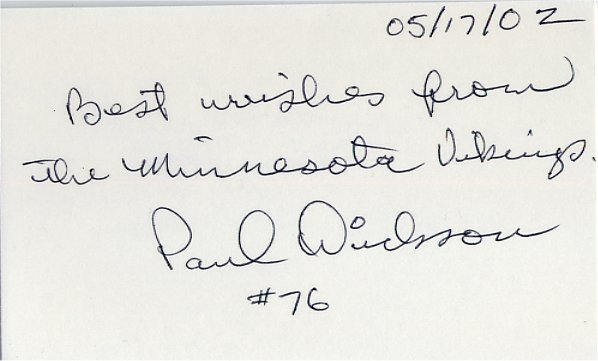 05/17/02
Best wishes from
the Minnesota Vikings.
Paul Dickson
#76